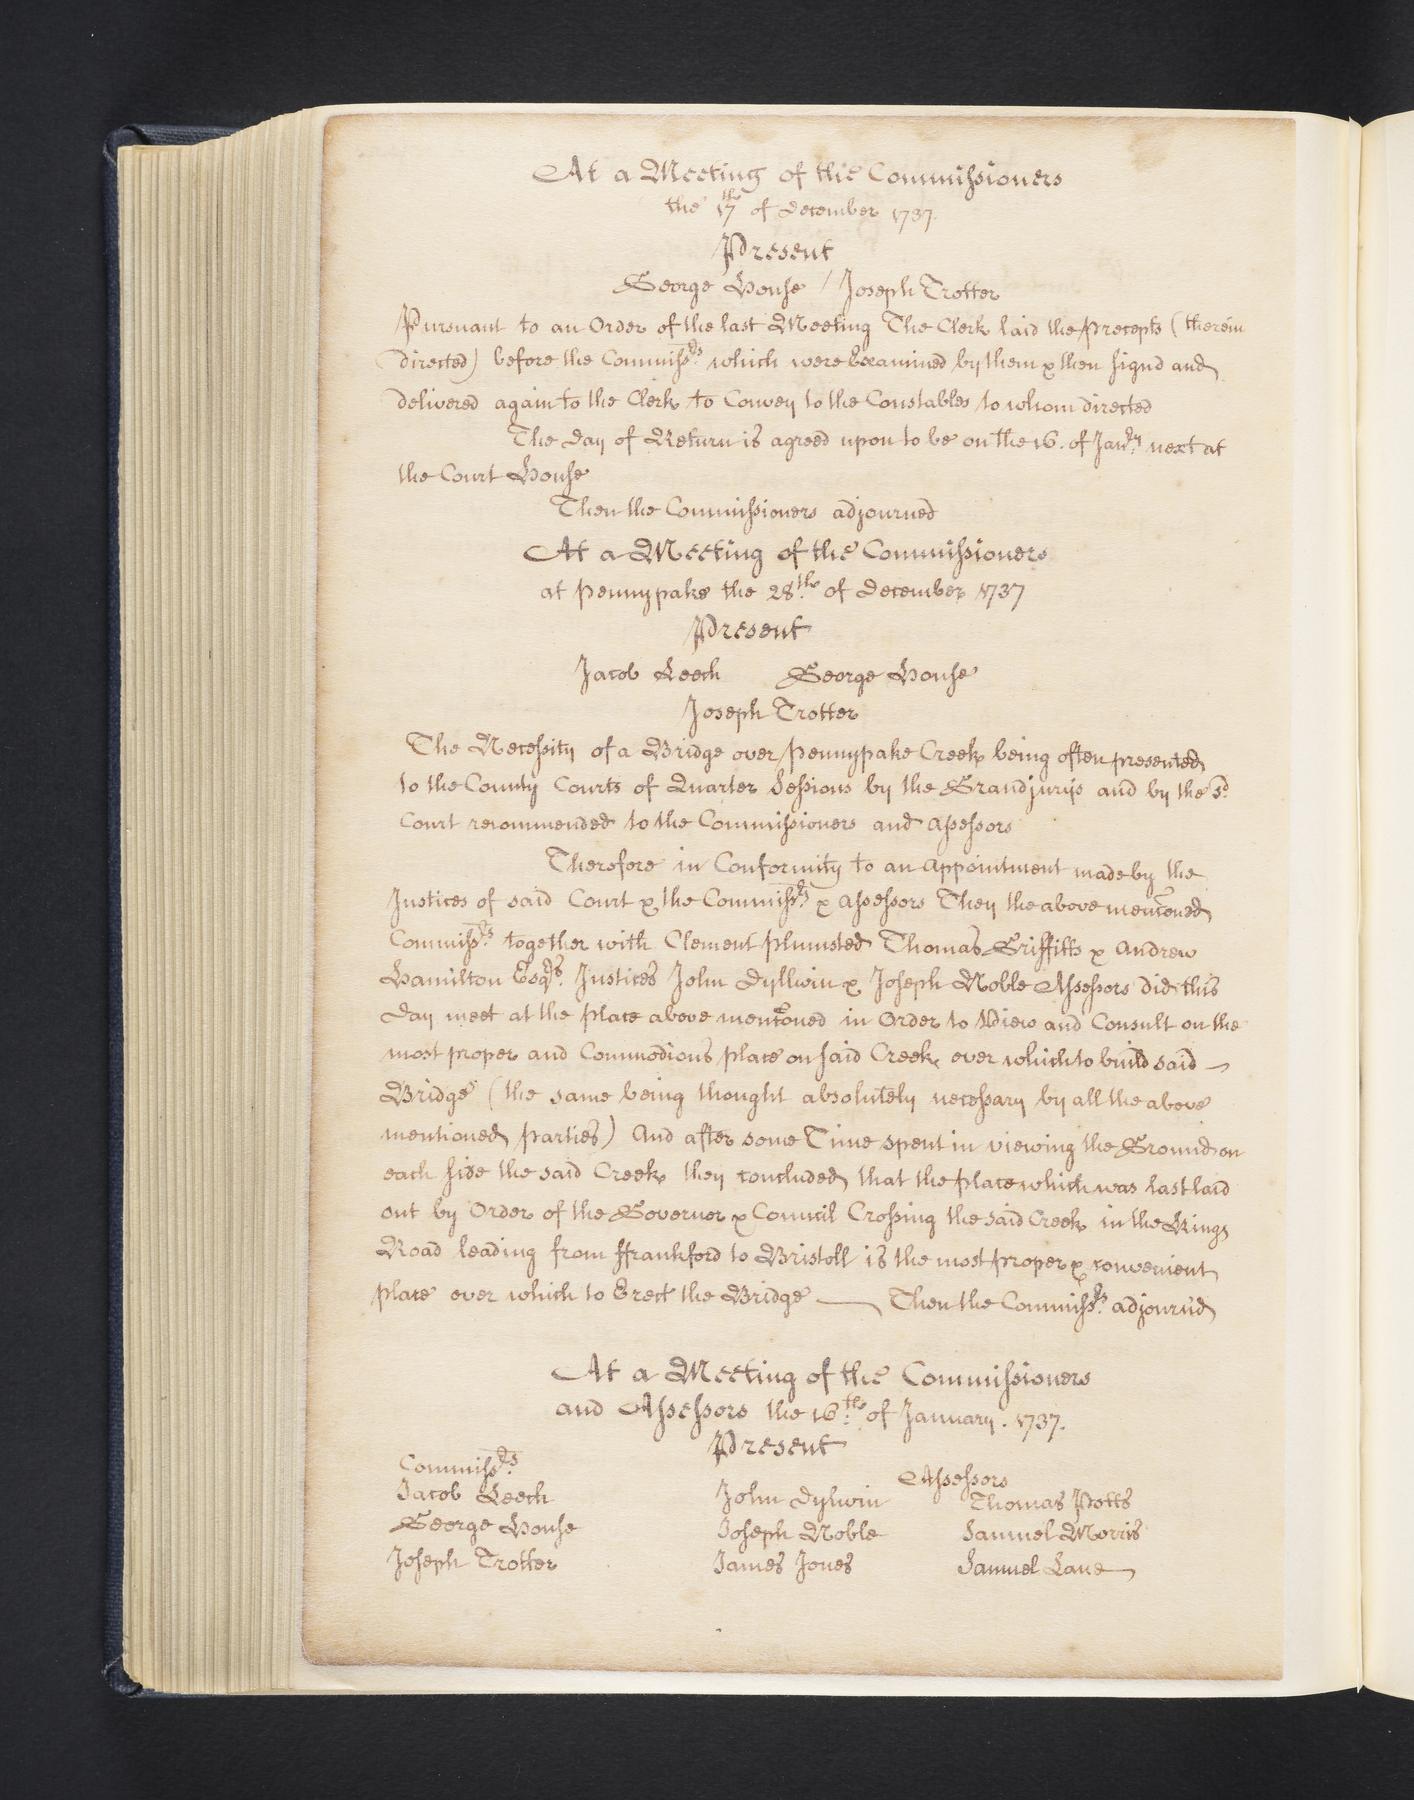 At a Meeting of the Commissioners
the 17th of December 1737.
Present
George House / Joseph Trotter
Pursuant to an Order of the last Meeting The Clerk laid the precepts (therein
directed) before the Commissrs. which were Examined by them & then signd and
delivered again to the Clerk to Convey to the Constables to whom directed
The Day of Return is agreed upon to be on the 16. of Janry. next at
the Court House
Then the Commissioners adjourned
At a Meeting of the Commissioners
at Pennypake the 28th. of December 1737
Present
Jacob Leech George House
Joseph Trotter
The Necessity of a Bridge over Pennypake Creek being often presented
to the County Courts of Quarter Sessions by the Grandjurys and by the sd.
Court recommended to the Commissioners and Assessors
Therefore in Conformity to an Appointment made by the
Justices of said Court & the Commissrs & Assessors They the above mencõned
Commissrs. together with Clement Plumsted Thomas Griffitts & Andrew
Hamilton Esqrs. Justices John Dyllwin & Joseph Noble Assessors did this
Day meet at the place above mencõned in Order to View and Consult on the
most proper and Commodious place on said Creek over which to build said
Bridge (the same being thought absolutely necessary by all the above
mentioned parties) And after some Time spent in viewing the Ground on
each side the said Creek they concluded that the place which was last laid
out by Order of the Governor & Council Crossing the said Creek in the Kings
Road leading from ffrankford to Bristoll is the most proper & convenient
place over which to Erect the Bridge — Then the Commissrs. adjourn'd
At a Meeting of the Commissioners
and Assessors the 16th. of January. 1737.
Present
Commissrs.
Assessors
Jacob Leech John Dylwin Thomas Potts
George House Joseph Noble Samuel Morris
Joseph Trotter James Jones Samuel Lane